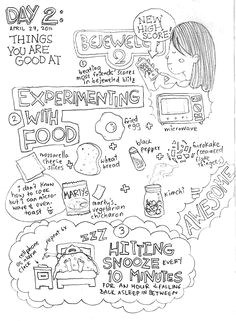 DAY 2:
APRIL 29, 2011
THINGS
YOU ARE
GOOD AT
NEW
HIGH
SCORE!
1
BEJEWELED
beating
most friends' scores
in bejeweled blitz
EXPERIMENTING
2
WITH
FOOD
fried
egg
microwave
mozzarella
cheese
slices
wheat
bread
black
pepper
furikake
(seaweed
things)
I don't know
how to cook
but I can micro-
wave & oven-
toast
MARTY'S
marty's
vegetarian
chicharon
kimchi
AWESOME
ZZZ
3
HITTING
SNOOZE EVERY
10 MINUTES
FOR AN HOUR & FALLING
BACK ASLEEP IN BETWEEN